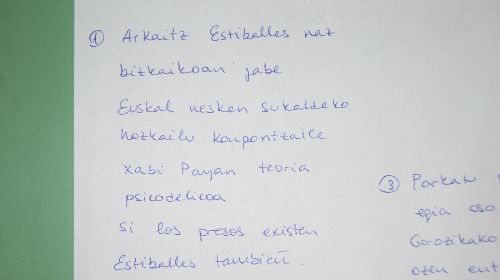 1 Arkaitz Estiballes naz
bizkaikoan jabe
Euskal nesken sukaldeko
hozkailu konpontzaile
xabi Payan teoria
psicodelicoa
Si los presos existen
Estiballes también.
3 Parkatu
egia oso
Gorozikako
ozen ent